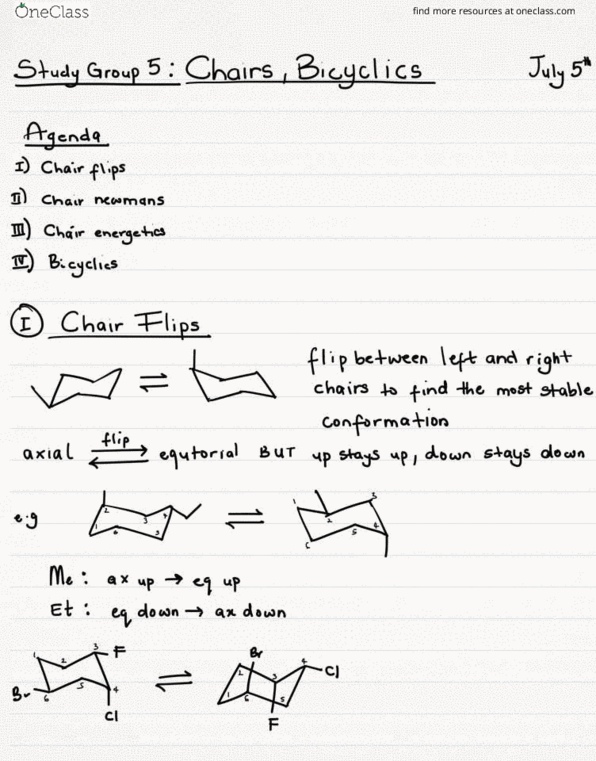 OneClass
find more resources at oneclass.com
Study Group 5: Chairs, Bicyclics
July 5th
Agenda
I) Chair flips
II) Chair newmans
III) Chair energetics
IV) Bicyclics
I Chair Flips
flip between left and right
chairs to find the most stable
conformation
axial flip equtorial BUT up stays up, down stays down
e.g
1 2 3 4 5 6
1 2 3 4 5 6
Me: ax up → eq up
Et: eq down → ax down
1 2 3 F
Br 6 5 4
Cl
Br
2 3 4 Cl
1 6 5
F